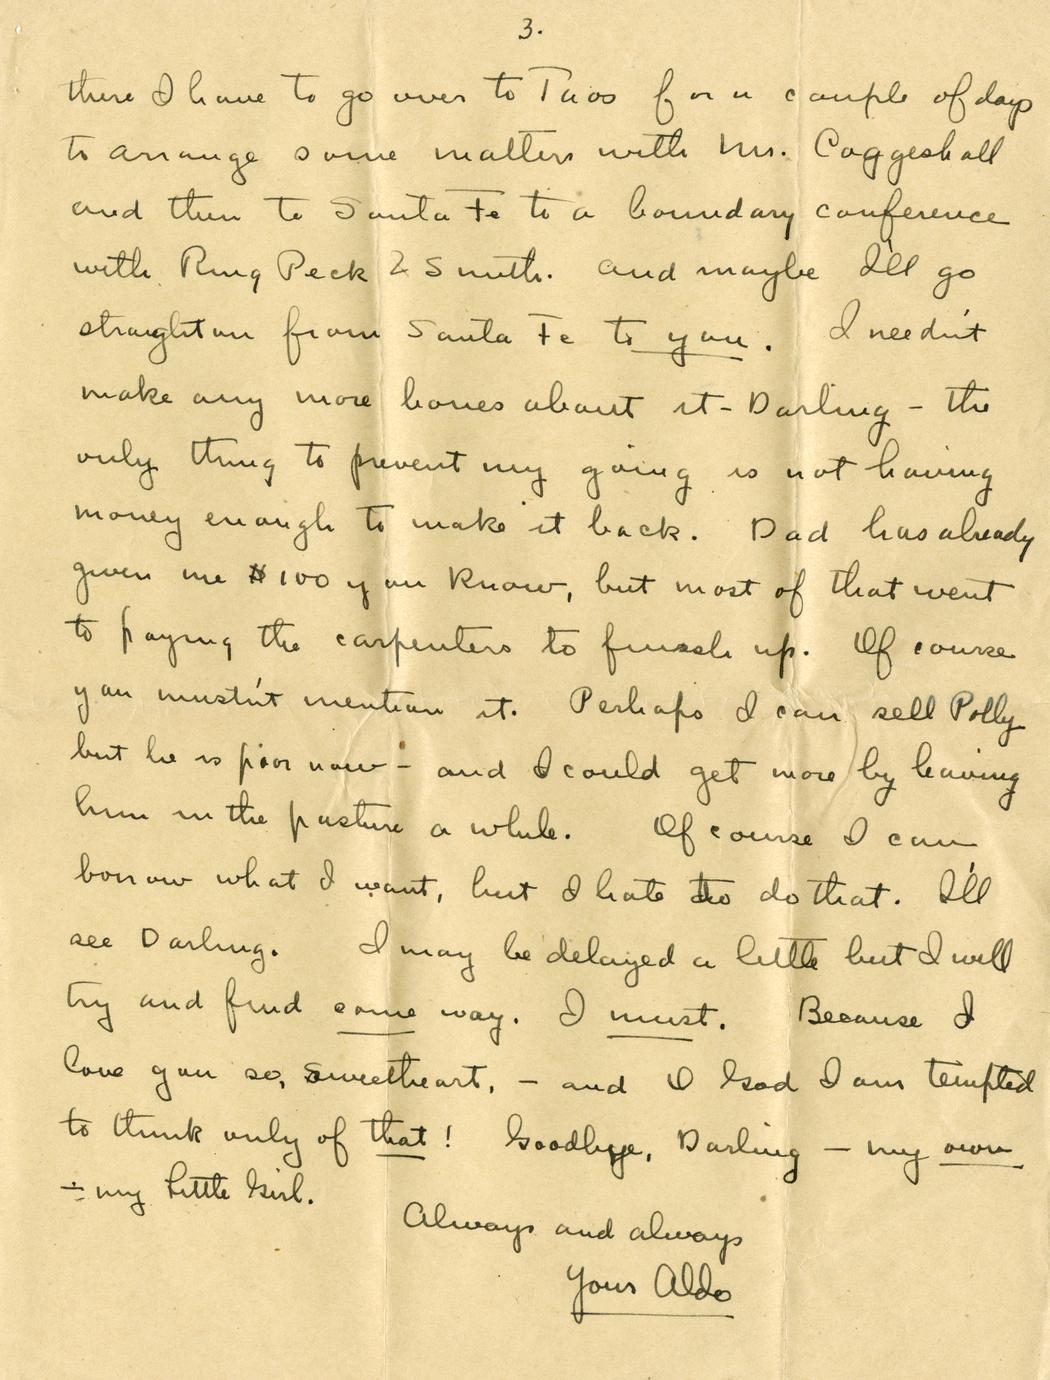 3.
there I have to go over to Taos for a couple of days
to arrange some matters with Mr. Coggeshall
and then to Santa Fe to a boundary conference
with Ring Peck & Smith. And maybe I'll go
straight on from Santa Fe to you. I needn't
make any more bones about it - Darling - the
only thing to prevent my going is not having
money enough to make it back. Dad has already
given me $100 you know, but most of that went
to paying the carpenters to finish up. Of course
you mustn't mention it. Perhaps I can sell Polly
but he is poor now - and I could get more by leaving
him in the pasture a while. Of course I can
borrow what I want, but I hate to do that. I'll
see Darling. I may be delayed a little but I will
try and find some way. I must. Because I
love you so, sweetheart, - and O God I am tempted
to think only of that! Goodbye, Darling - my own
- my Little Girl.
Always and always
Your Aldo